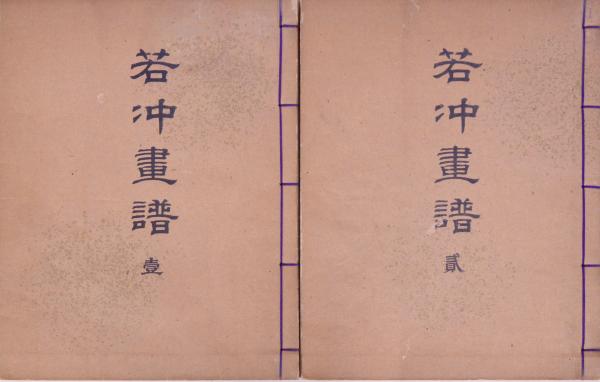 若冲畫譜
壹
若冲畫譜
貳